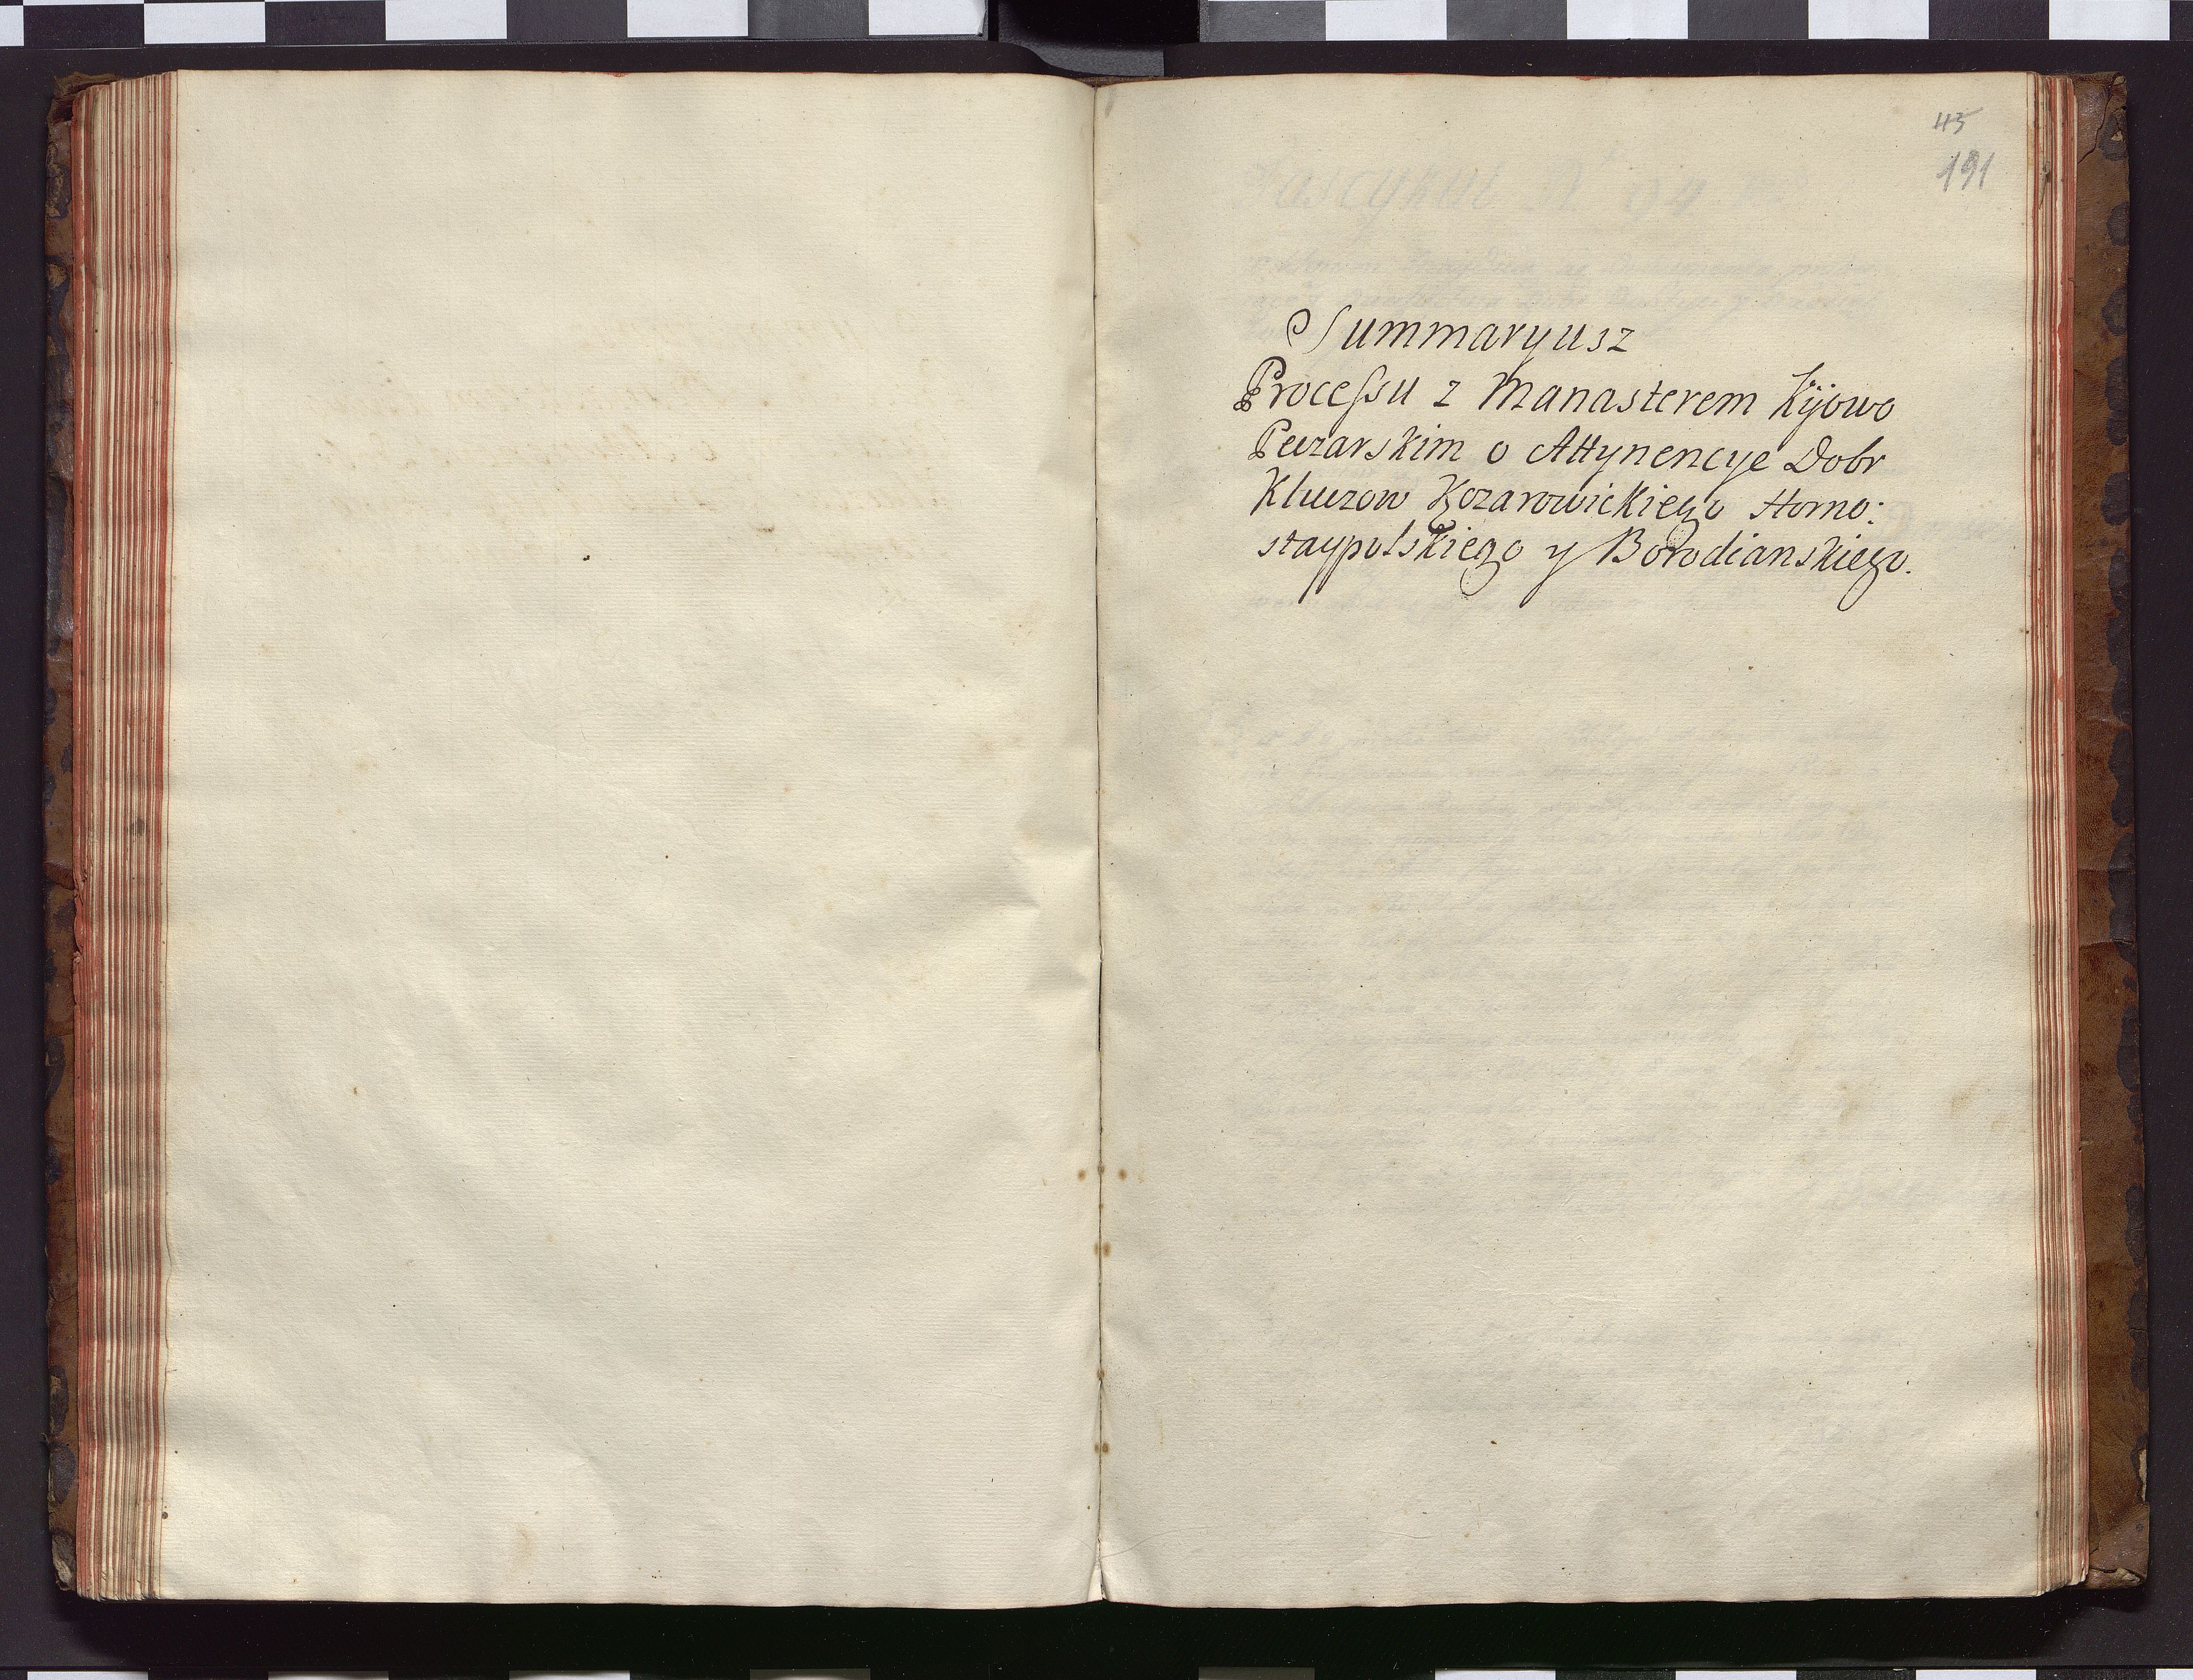 115
191
Summaryusz
Processu z Manasterem Kijowo
Peczarskim o Attynencye Dobr
Kluczow Kozarowickiego Horno:
staypolskiego y Borodianskiego.